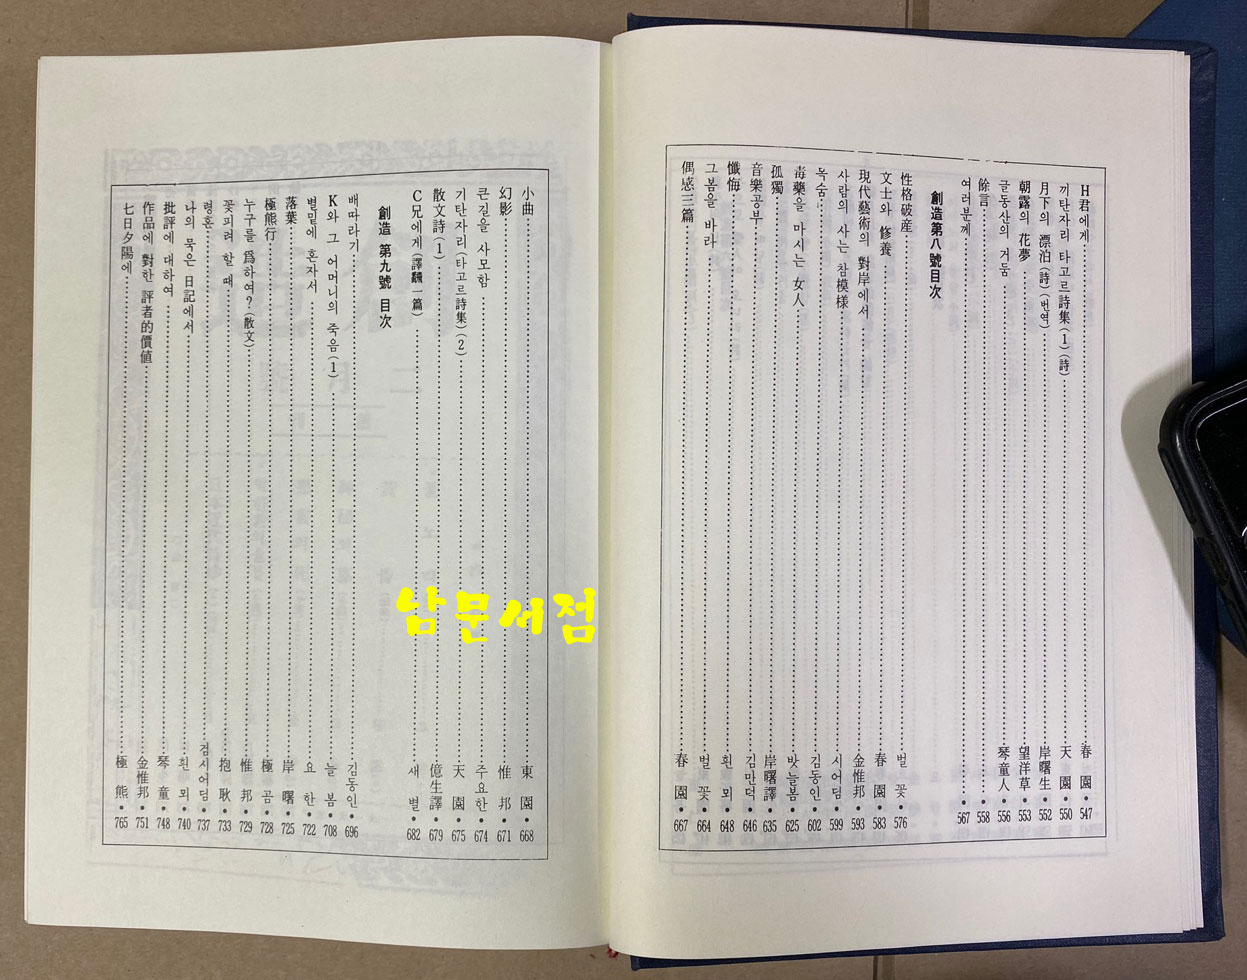 H君에게 春園 • 547
끼탄자리 타고르詩集(1)(詩) 天園 • 550
月下의 漂泊(詩)(번역) 岸曙生 • 552
朝露의 花夢 望洋草 • 553
글동산의 거둠 琴童人 • 556
餘言 • 558
여러분께 • 567
創造第八號目次
性格破産 벌꽃 • 576
文士와 修養 春園 • 583
現代藝術의 對岸에서 金惟邦 • 593
사람의 사는 참模樣 시어딤 • 599
목숨 김동인 • 602
毒藥을 마시는 女人 밧늘봄 • 625
孤獨 岸曙譯 • 635
音樂공부 김만덕 • 646
懺悔 흰뫼 • 648
그봄을 바라 벌꽃 • 664
偶感三篇 春園 • 667
小曲 東園 • 668
幻影 惟邦 • 671
큰길을 사모함 주요한 • 674
기탄자리(타고르詩集)(2) 天園 • 675
散文詩(1) 億生譯 • 679
C兄에게(譯 一篇) 새별 • 682
創造 第九號 目次
배따라기 김동인 • 696
K와 그 어머니의 죽음(1) 늘봄 • 708
별밑에 혼자서 요한 • 722
落葉 岸曙 • 725
極熊行 極곰 • 728
누구를 爲하여?(散文) 惟邦 • 729
꽃피려 할 때 抱耿 • 733
령혼 검시어딤 • 737
나의 묵은 日記에서 흰뫼 • 740
批評에 대하여 琴童 • 748
作品에 對한 評者的價値 金惟邦 • 751
七日夕陽에 極熊 • 765
남문서점